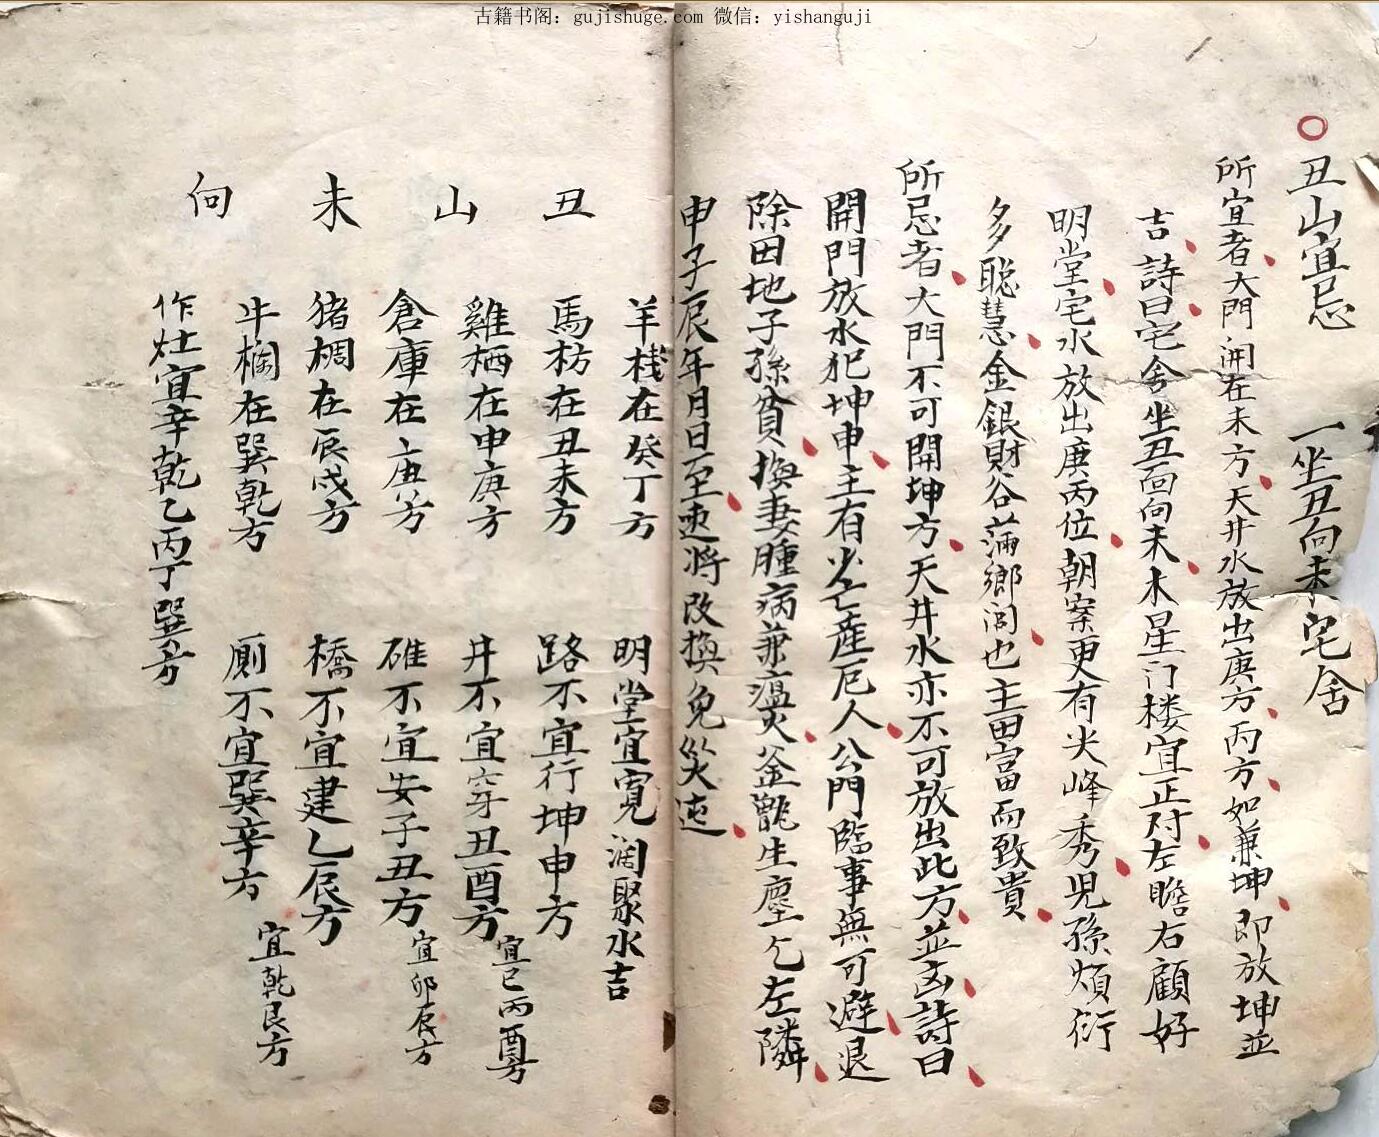 古籍书阁：gujishuge.com 微信：yishanguji
丑山宜忌 一坐丑向未宅舍
所宜者大門開在未方天井水放出庚方丙方如兼坤即放坤並
吉詩曰宅舍坐丑面向未木星门楼宜正対左瞻右顧好
明堂宅水放出庚丙位朝案更有尖峰秀児孫煩衍
多聪慧金銀財谷蒲鄉闾也主田富而致貴
所忌者大門不可開坤方天井水亦不可放出此方並凶詩曰
開門放水犯坤申主有火亡產厄人公門臨事無可避退
除田地子孫貧換妻腫病兼瘟火釜甑生塵乞左隣
申子辰年月日至速将改換免災迍
羊棧在癸丁方 明堂宜寬濶聚水吉
丑山未向
馬枋在丑未方 路不宜行坤申方
雞栖在申庚方 井不宜穿丑酉方 宜巳丙酉方
倉庫在庚方 碓不宜安子丑方 宜卯辰方
猪椆在辰戌方 橋不宜建乙辰方
牛欄在巽乾方 厠不宜巽辛方 宜乾艮方
作灶宜辛乾乙丙丁巽方